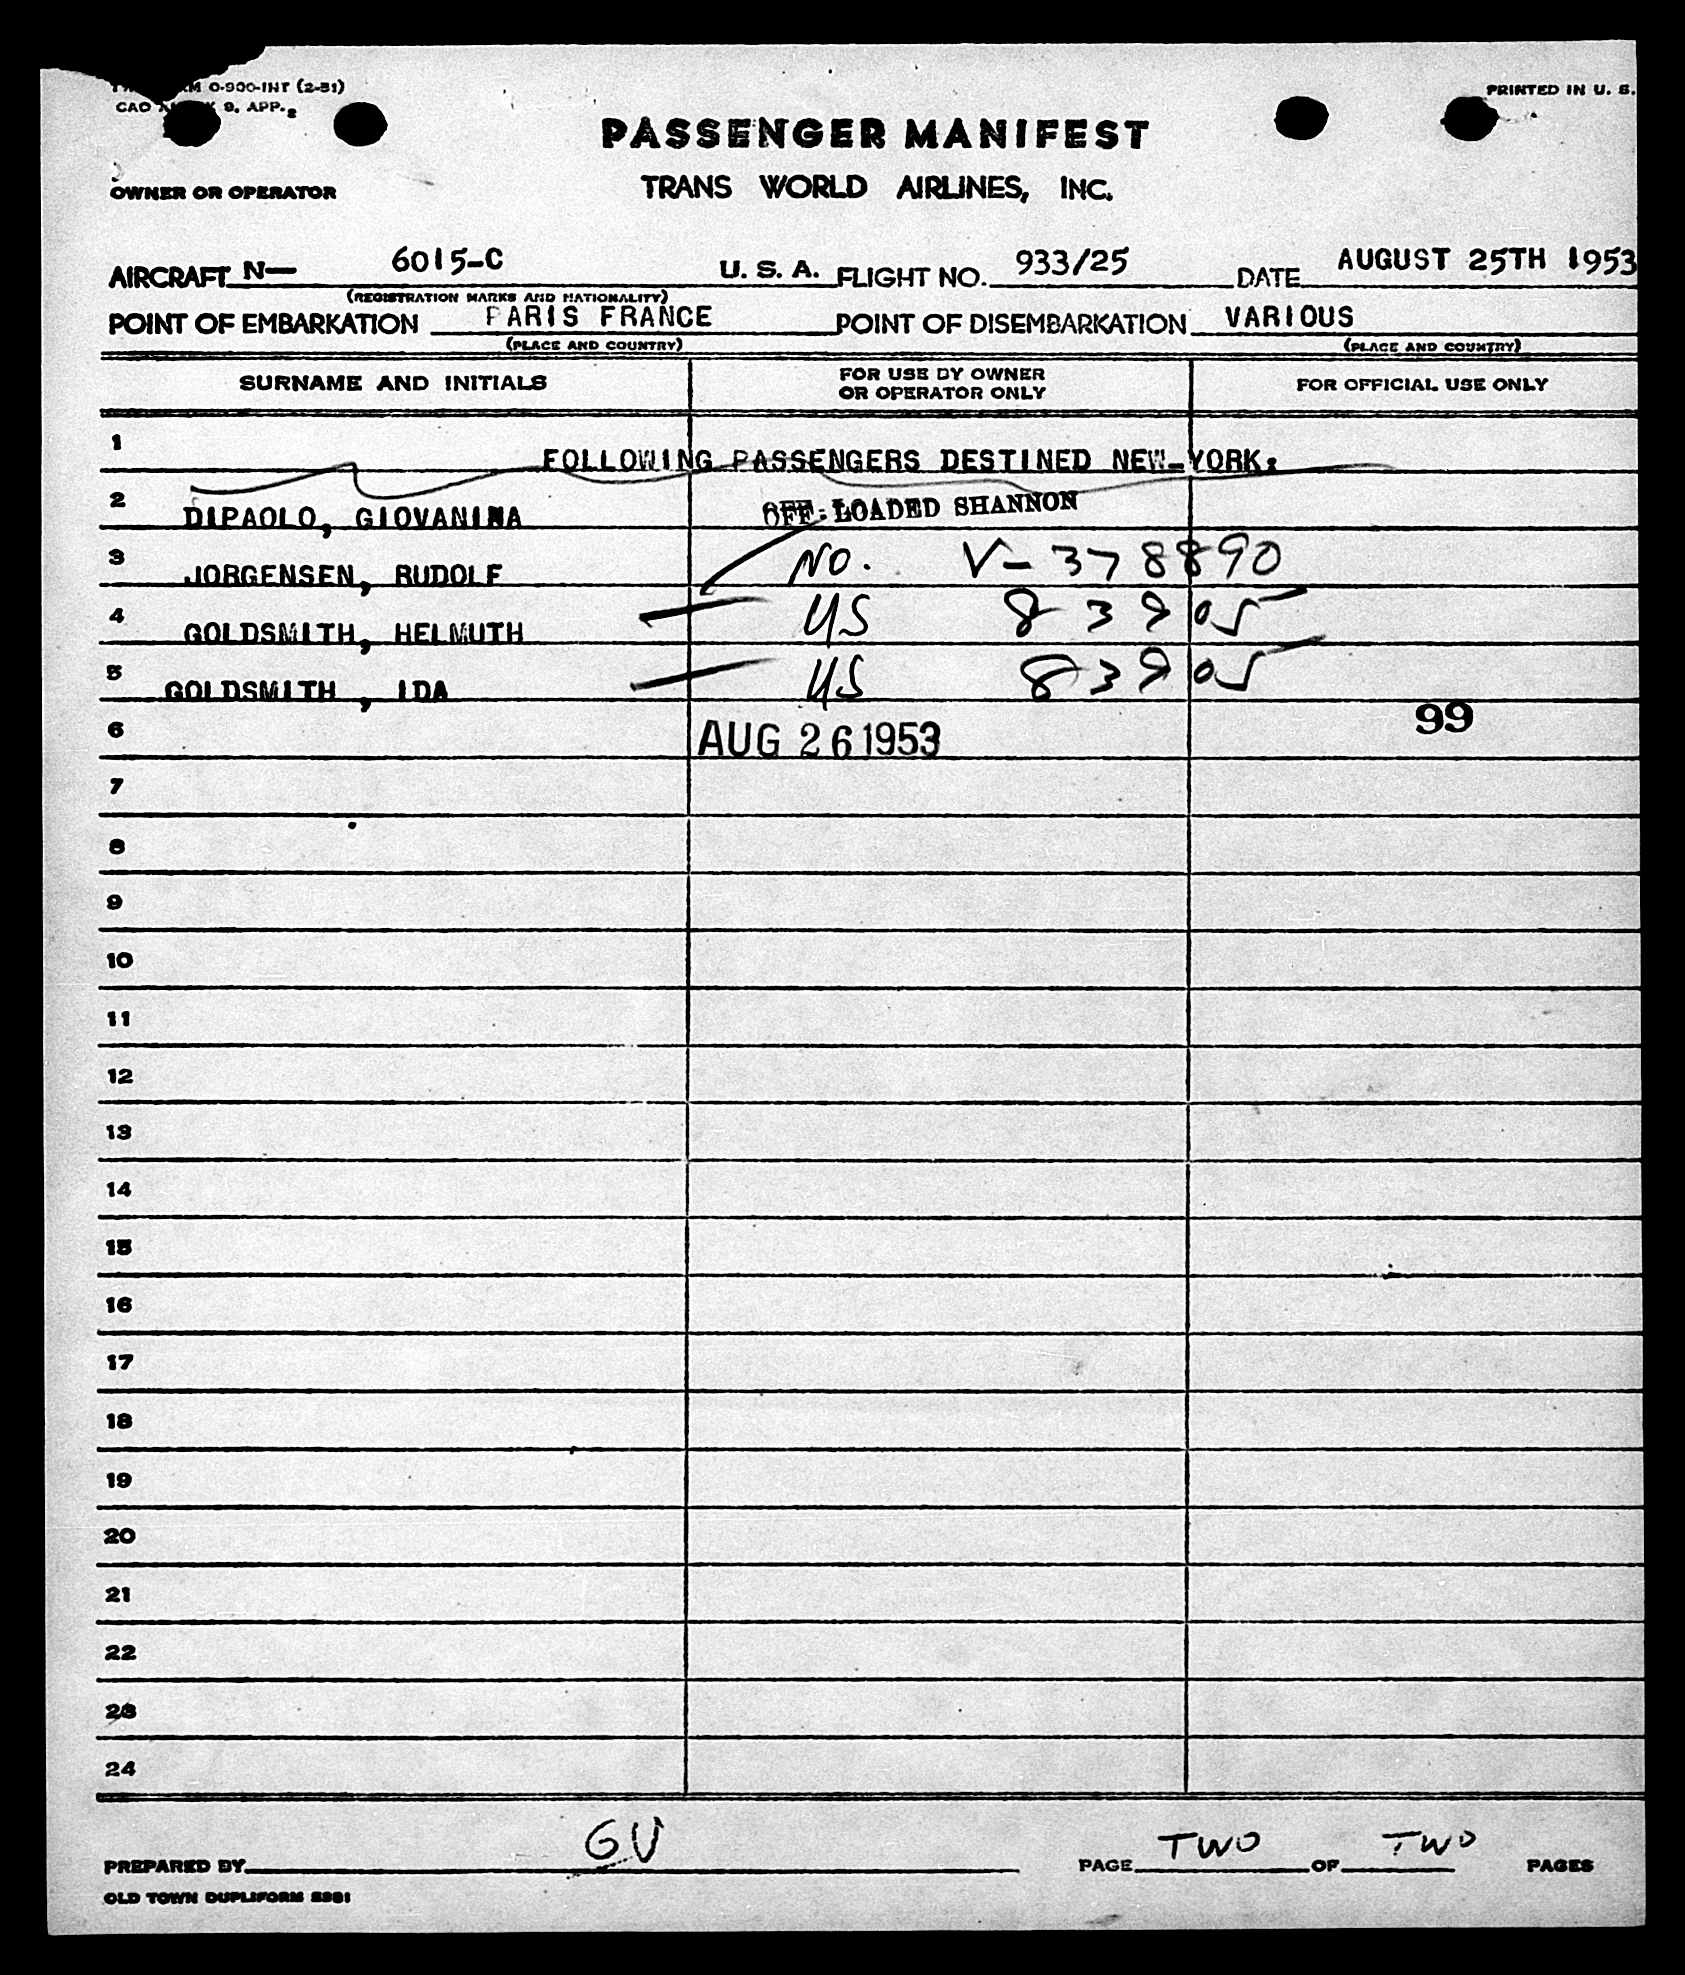 0-900-INT (2-51)
PRINTED IN U. S.
CAO 9, APP. 2
PASSENGER MANIFEST
OWNER OR OPERATOR
TRANS WORLD AIRLINES, INC.
AIRCRAFT N— 6015-C U. S. A. FLIGHT NO. 933/25 DATE AUGUST 25TH 1953
(REGISTRATION MARKS AND NATIONALITY)
POINT OF EMBARKATION PARIS FRANCE POINT OF DISEMBARKATION VARIOUS
(PLACE AND COUNTRY) (PLACE AND COUNTRY)
SURNAME AND INITIALS FOR USE BY OWNER OR OPERATOR ONLY FOR OFFICIAL USE ONLY
1 FOLLOWING PASSENGERS DESTINED NEW-YORK:
2 DIPAOLO, GIOVANINA OFF-LOADED SHANNON
3 JORGENSEN, RUDOLF NO. V-378890
4 GOLDSMITH, HELMUTH US 83905
5 GOLDSMITH, IDA US 83905
6 AUG 26 1953 99
7
8
9
10
11
12
13
14
15
16
17
18
19
20
21
22
23
24
PREPARED BY GV PAGE TWO OF TWO PAGES
OLD TOWN DUPLIFORM